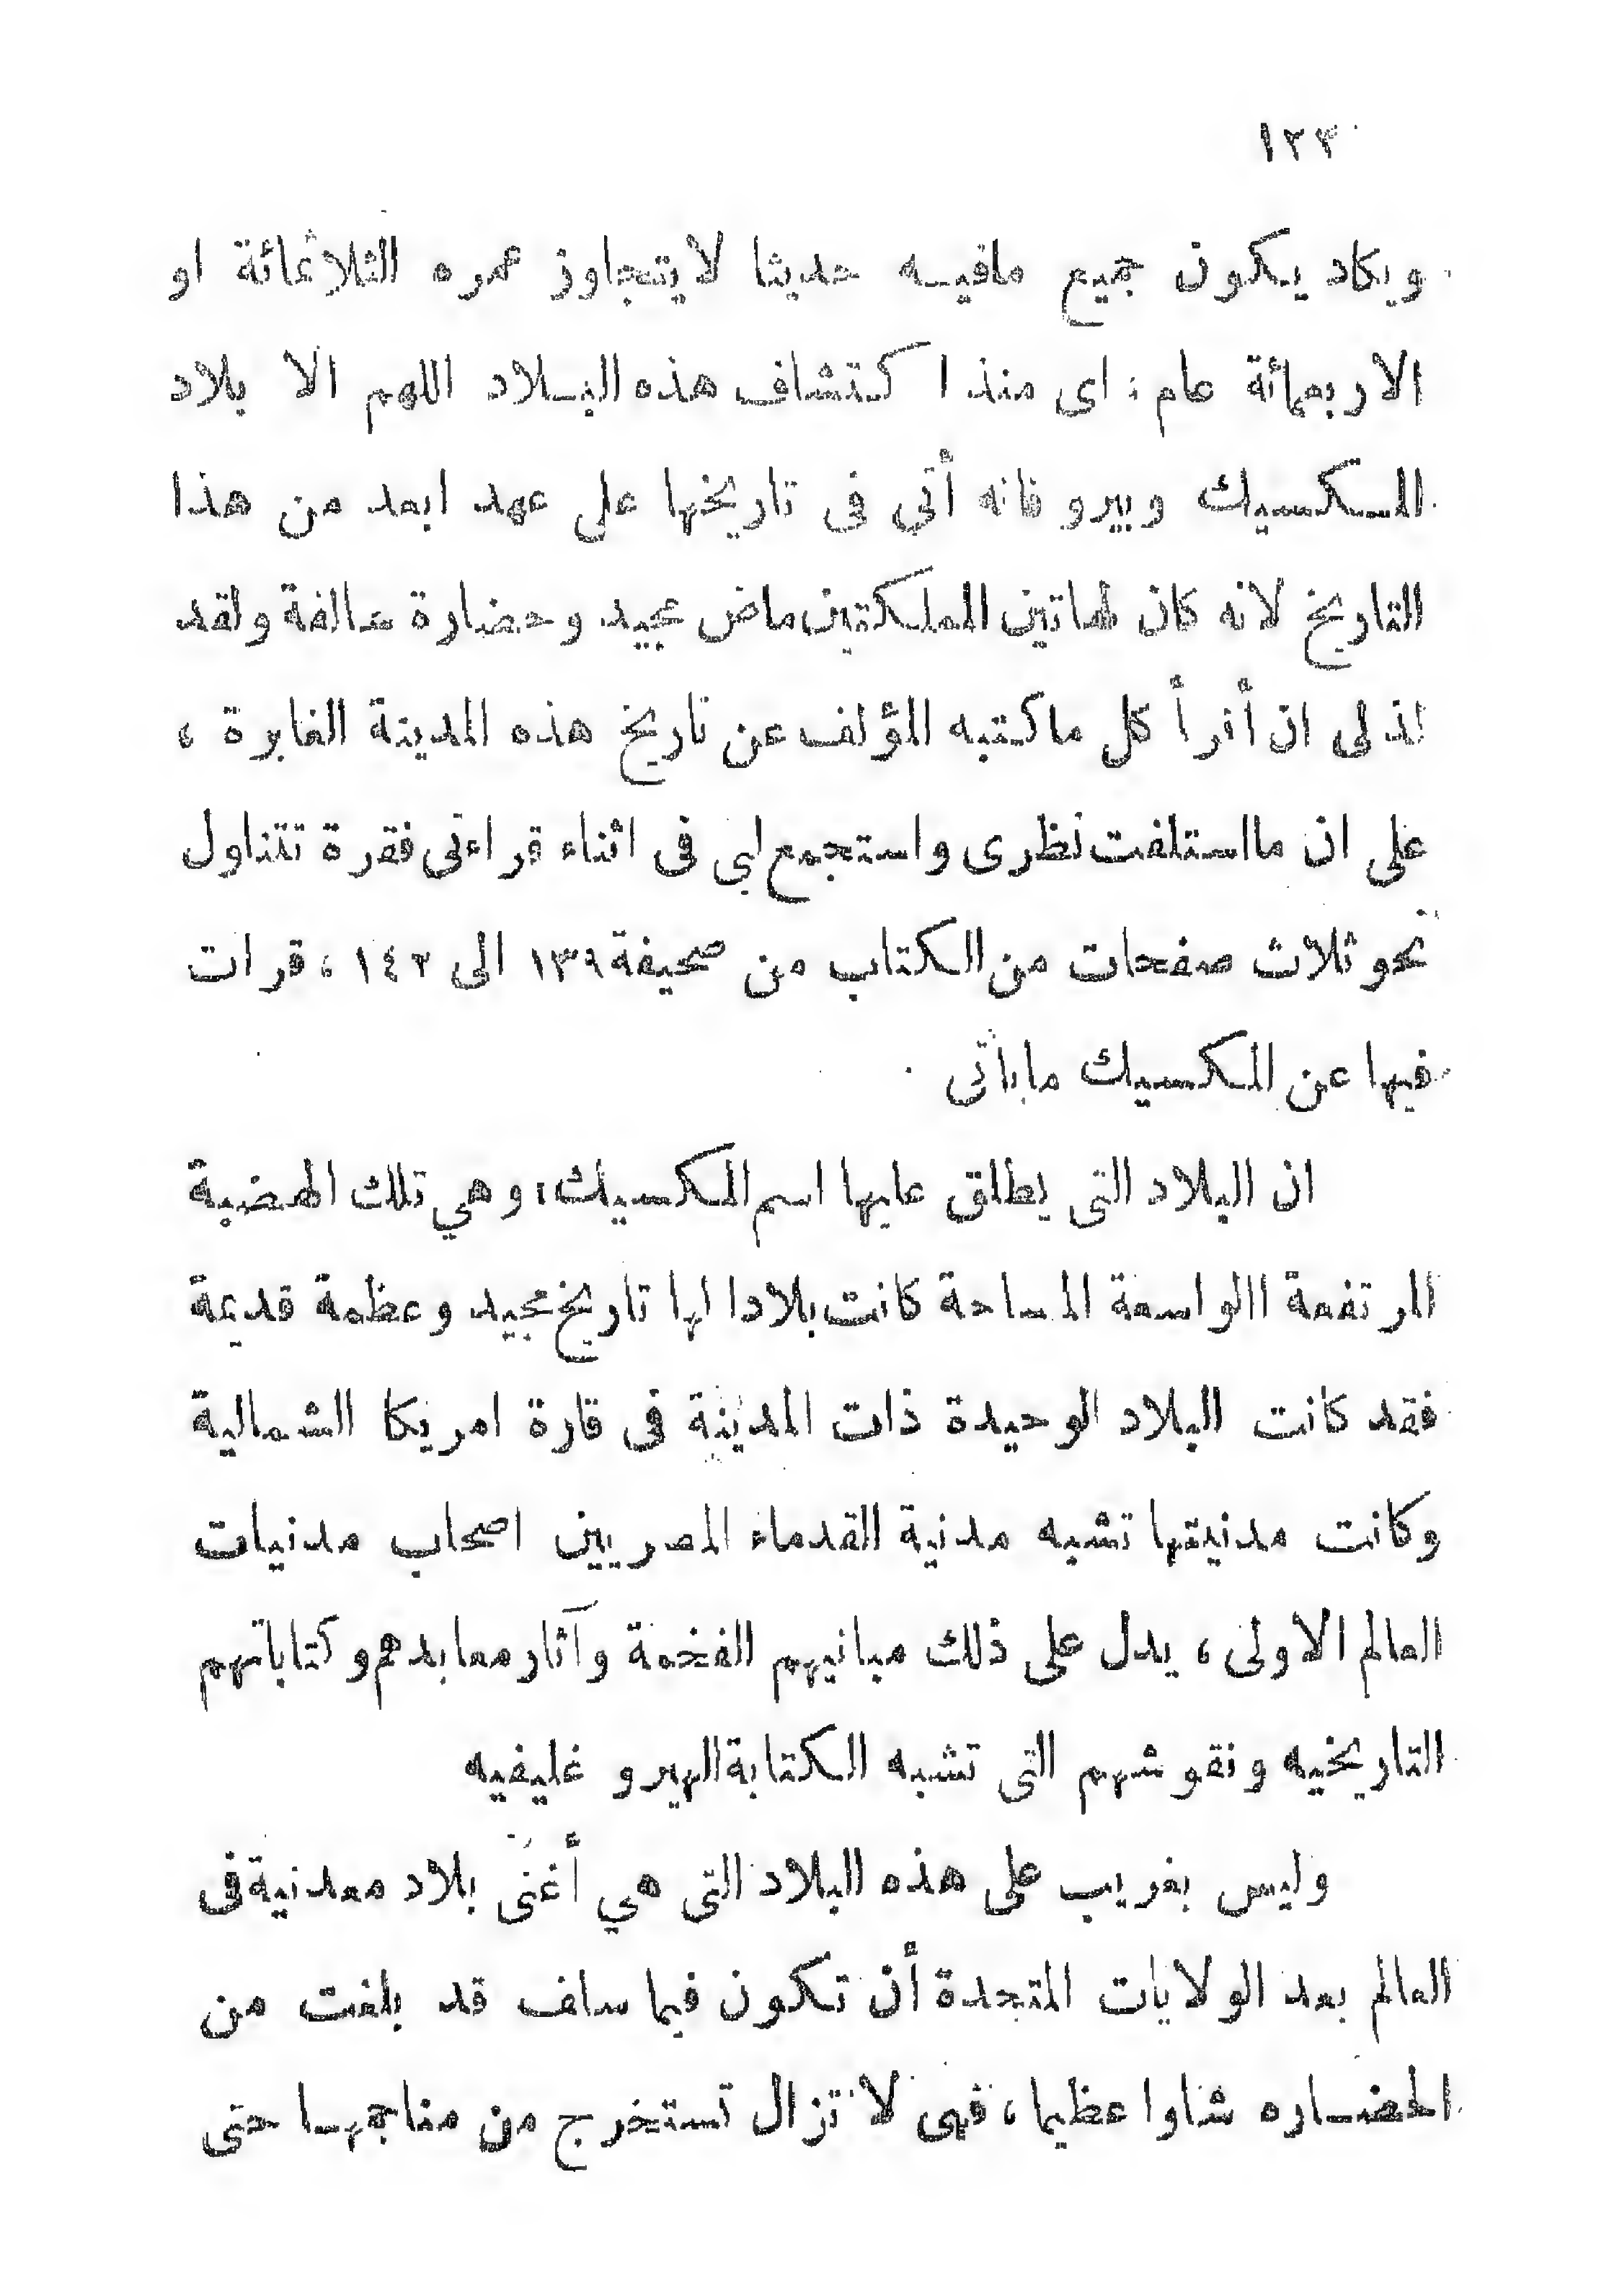 ١٢٣
ويكاد يكون جميع مافيه حديثا لايتجاوز عمره الثلاثمائة او
الاربعمائة عام ، اى منذ ا كتشاف هذه البلاد اللهم الا بلاد
المكسيك وبيرو فانه أتى فى تاريخها على عهد ابعد من هذا
التاريخ لانه كان لهاتين المملكتين ماض مجيد وحضارة سالفة ولقد
لذ لى ان أقرأ كل ما كتبه المؤلف عن تاريخ هذه المدينة الغابرة ،
على ان مااستلفت نظرى واستجمع لبى فى اثناء قراءتى فقرة تتناول
نحو ثلاث صفحات من الكتاب من صحيفة ١٣٩ الى ١٤٢ ، قرات
فيها عن المكسيك ماياتى
ان البلاد التى يطلق عليها اسم المكسيك ، وهي تلك الهضبة
المرتفعة االواسعة المساحة كانت بلادا لها تاريخ مجيد وعظمة قديمة
فقد كانت البلاد الوحيدة ذات المدينة فى قارة امريكا الشمالية
وكانت مدنيتها تشبه مدنية القدماء المصريين اصحاب مدنيات
العالم الاولى ، يدل على ذلك مبانيهم الفخمة وآثار معابدهم وكتاباتهم
التاريخيه ونقوشهم التى تشبه الكتابة الهيرو غليفيه
وليس بغريب على هذه البلاد التى هي أغنى بلاد معدنية فى
العالم بعد الولايات المتحدة أن تكون فيما سلف قد بلغت من
الحضاره شاوا عظيما ، فهى لا تزال تستخرج من مناجمها حتى